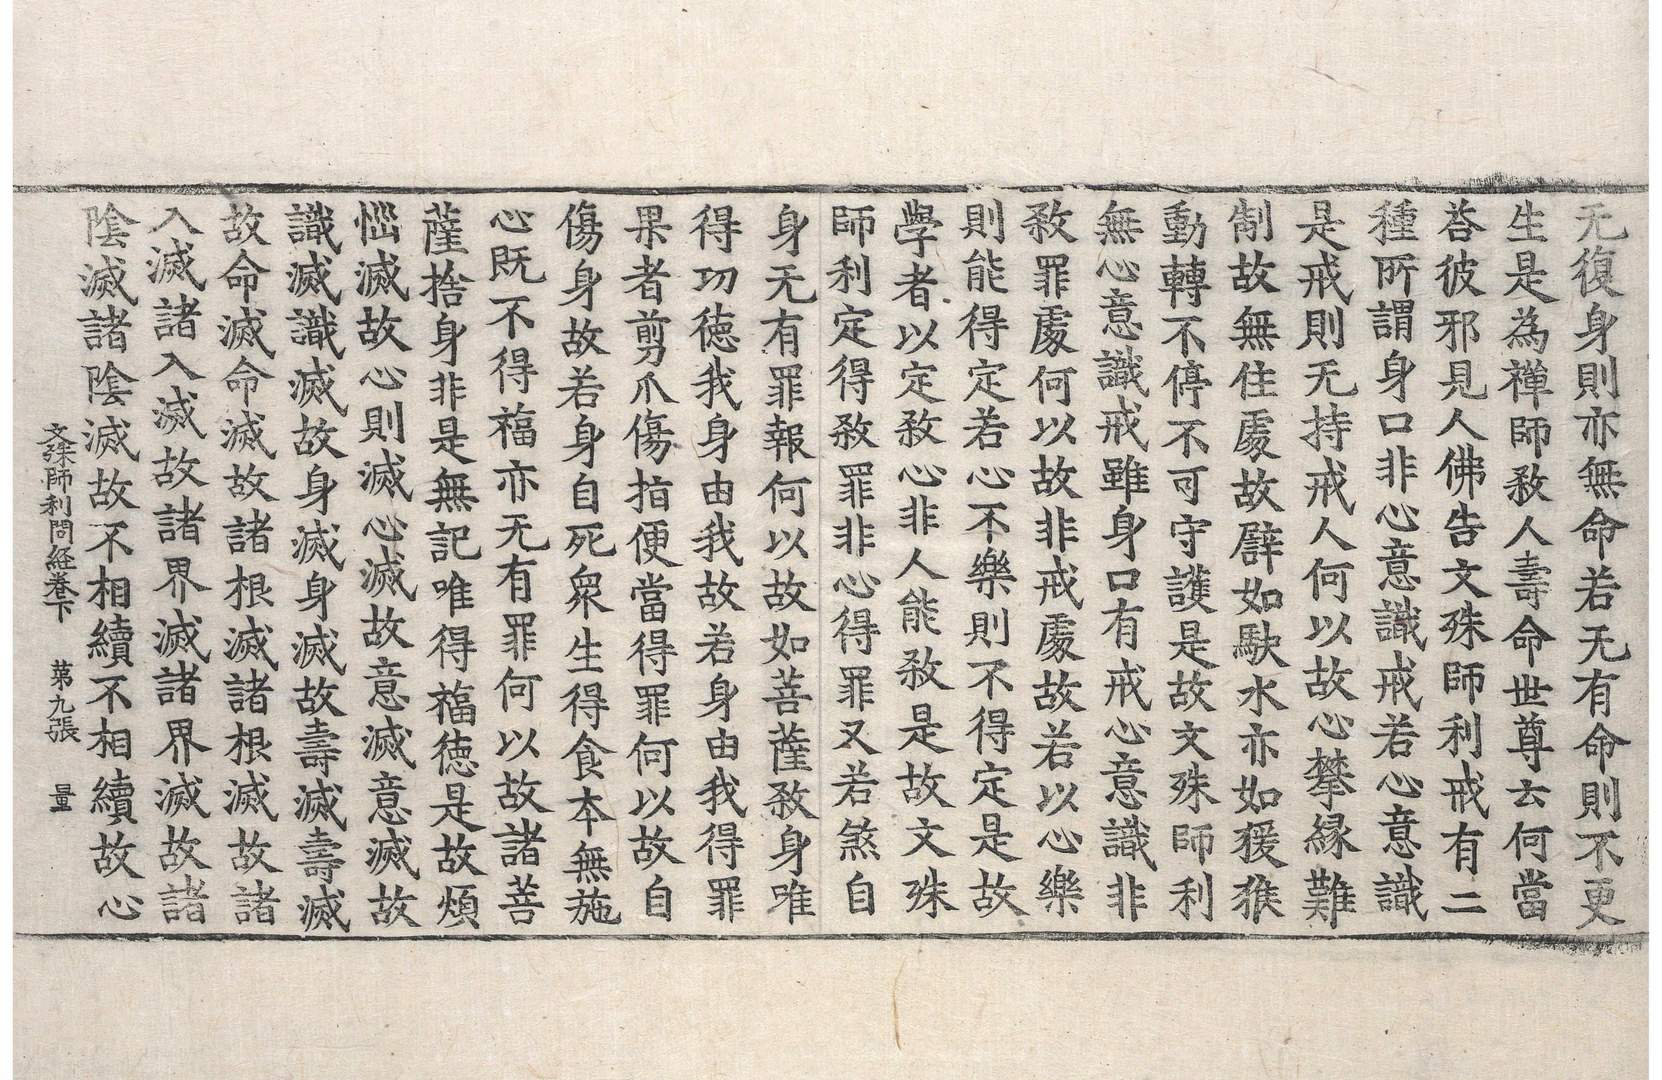 无復身則亦無命若无有命則不更
生是為禪師教人壽命世尊云何當
荅彼邪見人佛告文殊師利戒有二
種所謂身口非心意識戒若心意識
是戒則无持戒人何以故心攀緣難
制故無住處故譬如駛水亦如猨猴
動轉不停不可守護是故文殊師利
無心意識戒雖身口有戒心意識非
教罪處何以故非戒處故若以心樂
則能得定若心不樂則不得定是故
學者以定教心非人能教是故文殊
師利定得教罪非心得罪又若煞自
身无有罪報何以故如菩薩教身唯
得功徳我身由我故若身由我得罪
果者剪爪傷指便當得罪何以故自
傷身故若身自死衆生得食本無施
心既不得福亦无有罪何以故諸菩
薩捨身非是無記唯得福徳是故煩
惱滅故心則滅心滅故意滅意滅故
識滅識滅故身滅身滅故壽滅壽滅
故命滅命滅故諸根滅諸根滅故諸
入滅諸入滅故諸界滅諸界滅故諸
陰滅諸陰滅故不相續不相續故心
文殊師利問経卷下　苐九張　量